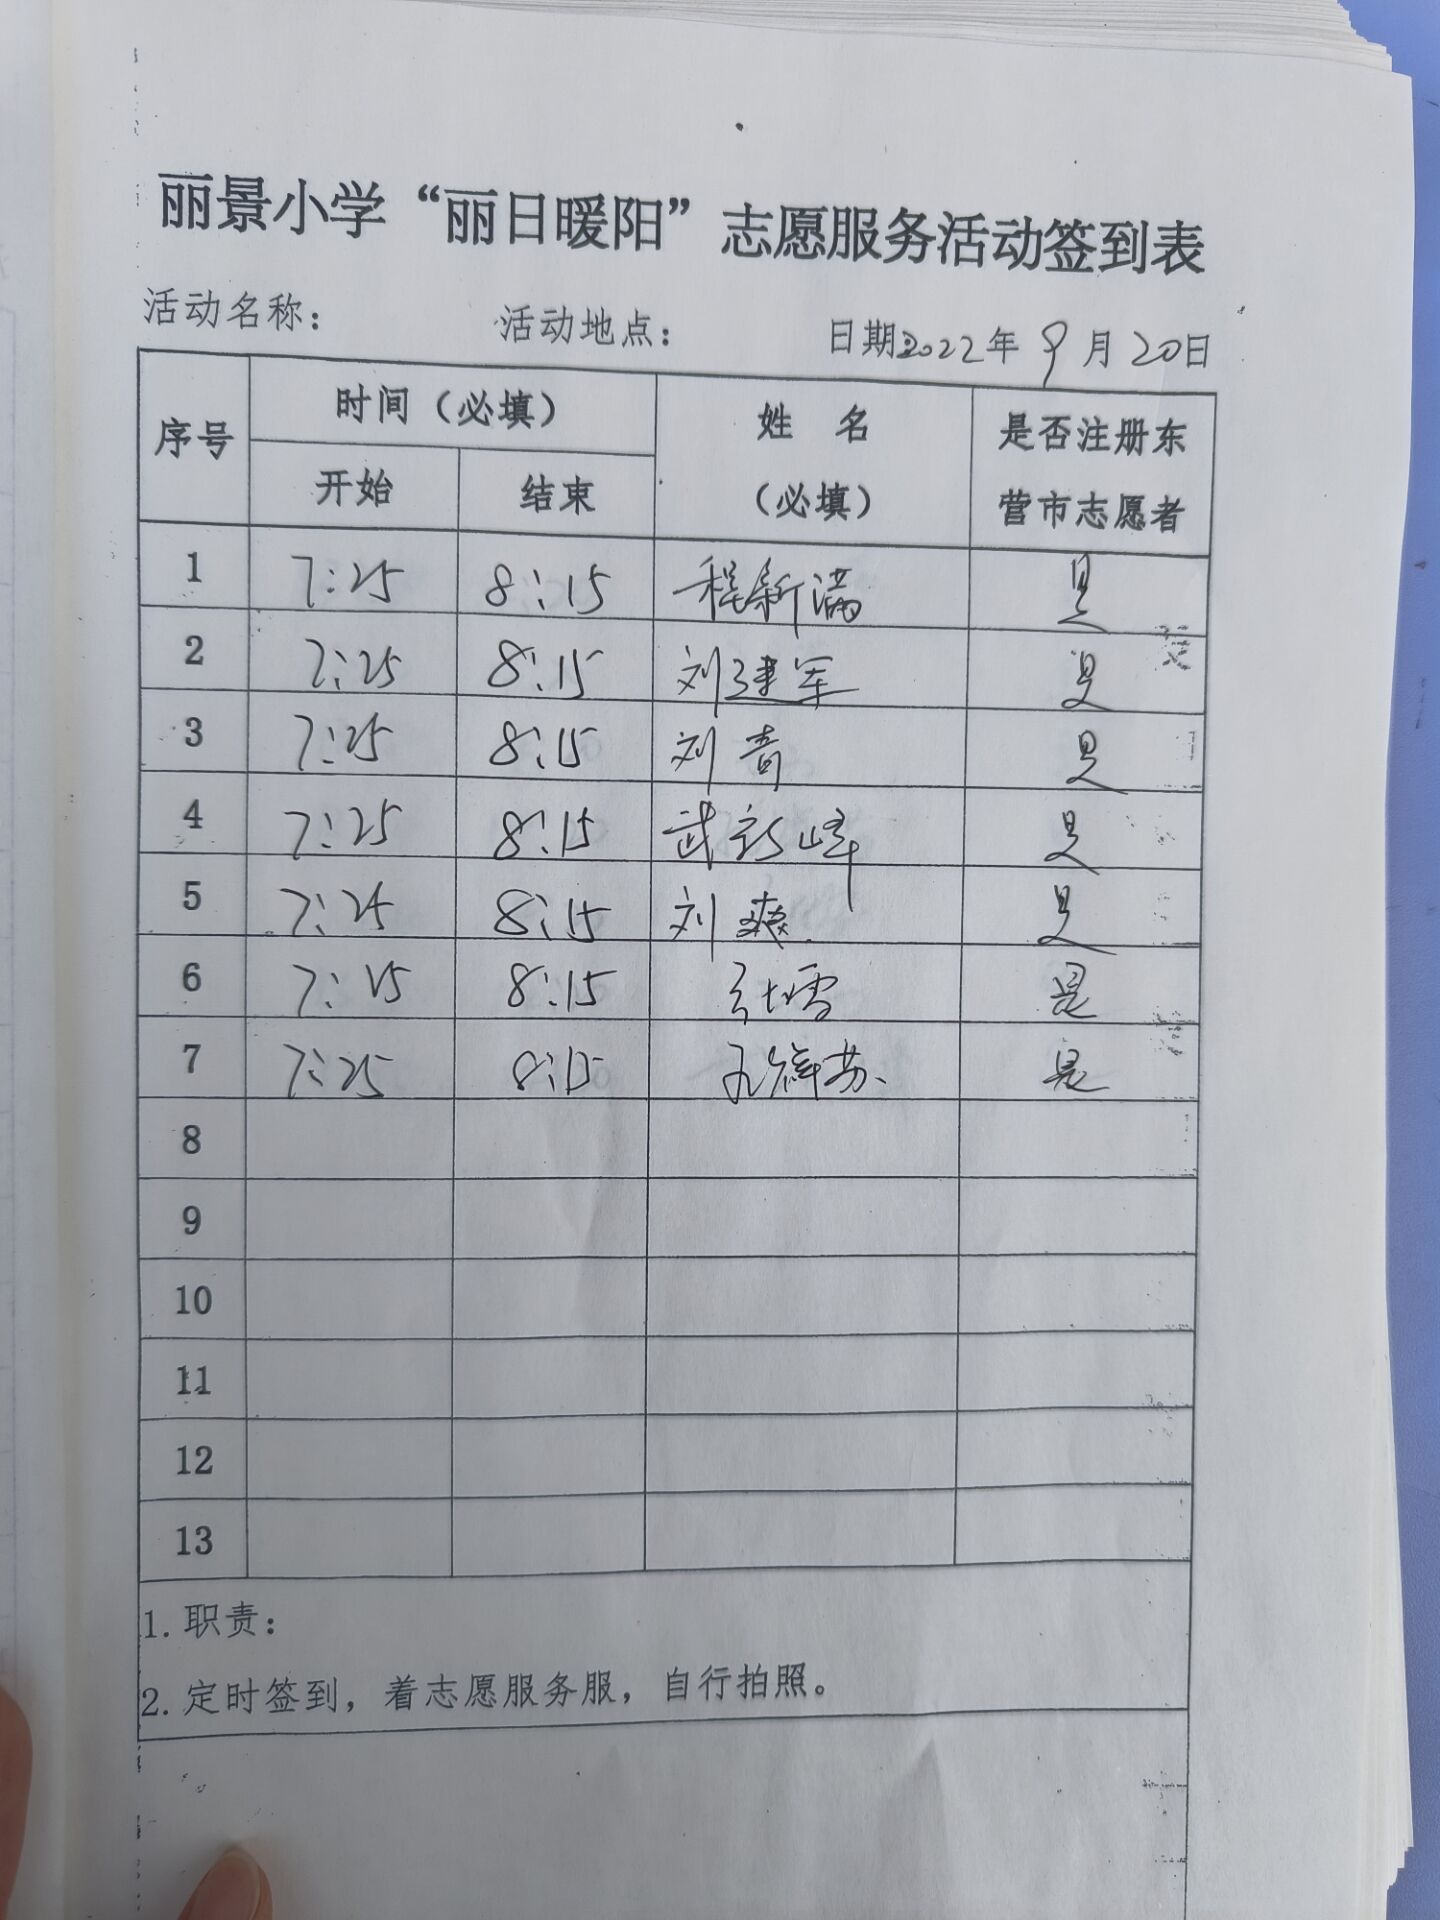 丽景小学“丽日暖阳”志愿服务活动签到表
活动名称： 活动地点： 日期2022年9月20日
序号 时间（必填） 姓 名（必填） 是否注册东营市志愿者
开始 结束
1 7:25 8:15 程新满 是
2 7:25 8:15 刘建军 是
3 7:25 8:15 刘青 是
4 7:25 8:15 武新峰 是
5 7:25 8:15 刘爽 是
6 7:25 8:15 是
7 7:25 8:15 是
8
9
10
11
12
13
1. 职责：
2. 定时签到，着志愿服务服，自行拍照。